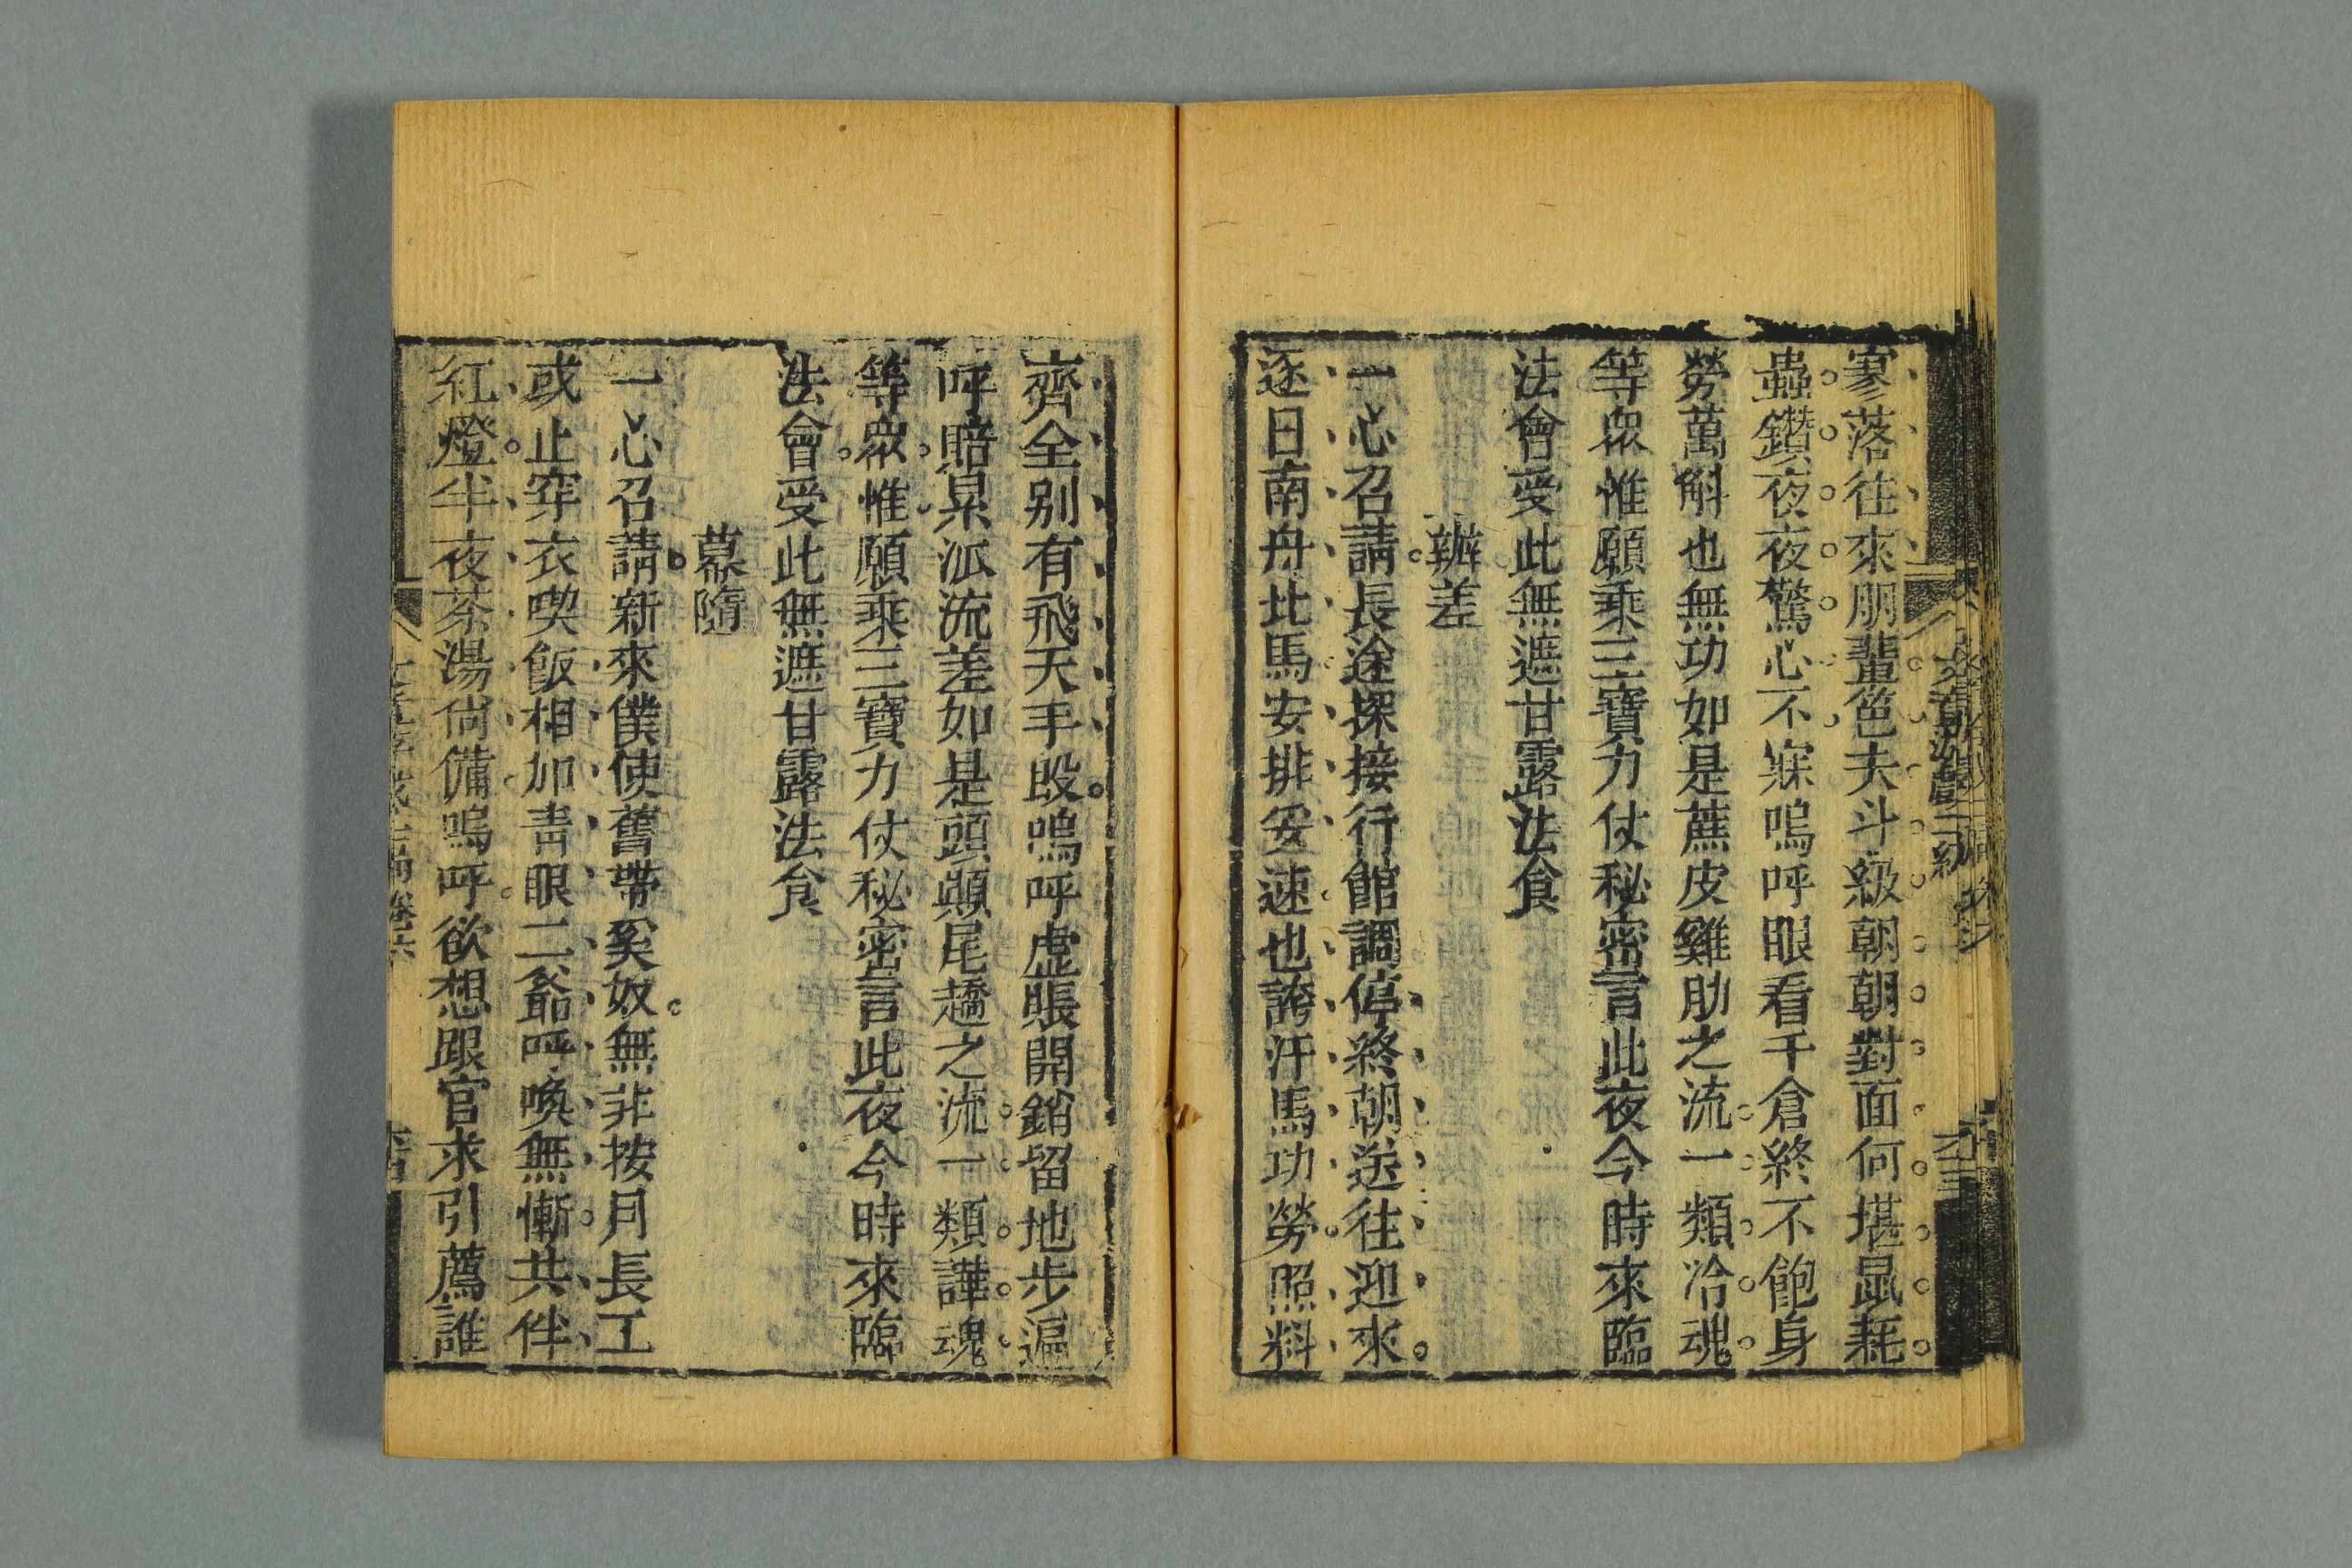 寥落往來朋輩笆夫斗級朝朝對面何堪鼠耗
蟲鑽夜夜驚心不寐嗚呼眼看千倉終不飽身
勞萬斛也無功如是蔗皮雞肋之流一類冷魂
等衆惟願乘三寶力仗秘密言此夜今時來臨
法會受此無遮甘露法食
辦差
一心召請長途探接行館調停終朝送往迎來
逐日南舟北馬安排妥速也誇汗馬功勞照料
齊全别有飛天手段嗚呼虛賬開銷留地步逼
呼賠累派流差如是頭顛尾趫之流一類譁魂
等衆惟願乘三寶力仗秘密言此夜今時來臨
法會受此無遮甘露法食
幕隨
一心召請新來僕使舊帶奚奴無非按月長工
或止穿衣喫飯相加青眼二爺呼喚無慚共伴
紅燈半夜茶湯尙備嗚呼欲想跟官求引薦誰